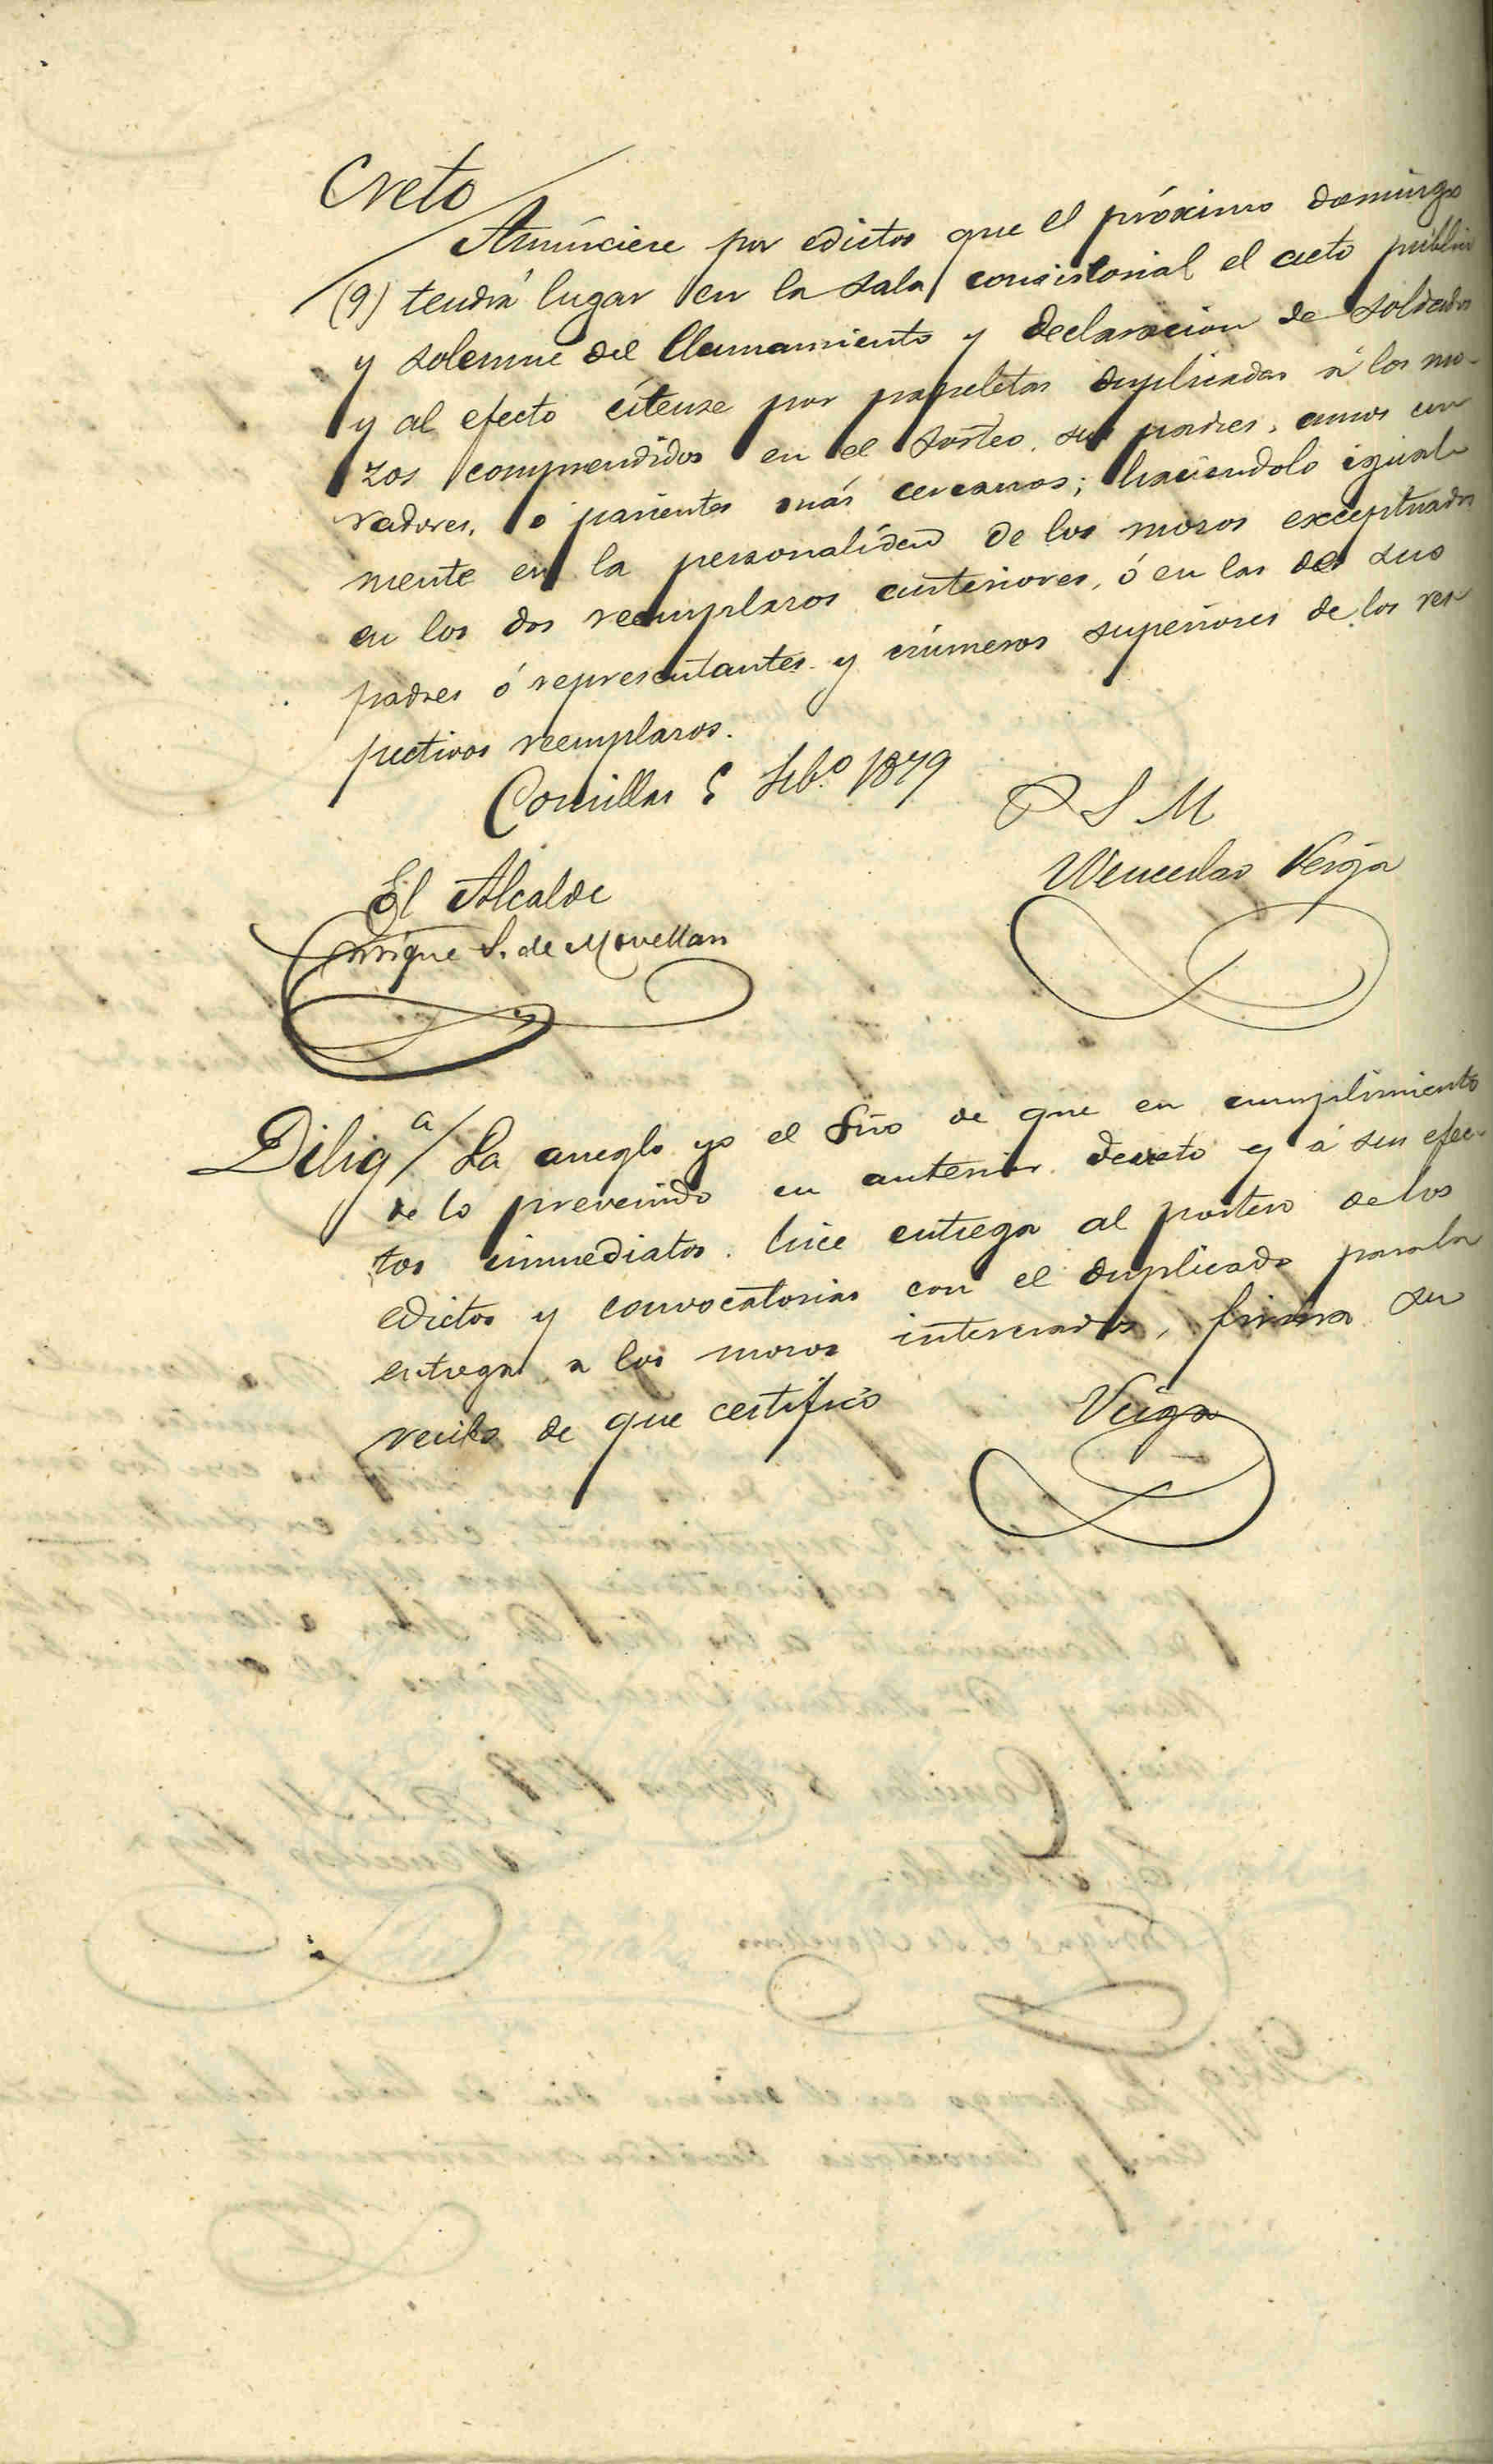 Creto
Anúnciese por edictos que el próximo domingo
(9) tendrá lugar en la sala consistorial el acto público
y solemne del llamamiento y declaracion de soldados
y al efecto cítense por papeletas duplicadas á los mo-
zos comprendidos en el sorteo, sus padres, amos cu-
radores, o parientes más cercanos; haciendolo igual-
mente en la personalidad de los mozos exceptuados
en los dos reemplazos anteriores, ó en las de sus
padres ó representantes y números superiores de los res-
pectivos reemplazos.
Comillas 5 Feb.º 1879
P S M
Wenceslao Veiga
El Alcalde
Enrique S. de Movellan
Diliga/ La arreglo yo el Srio de que en cumplimiento
de lo prevenido en anterior decreto y á sus efec-
tos inmediatos hice entrega al portero de los
edictos y convocatorias con el duplicado para la
entrega a los mozos interesados, firma su
recibo de que certifico
Veiga